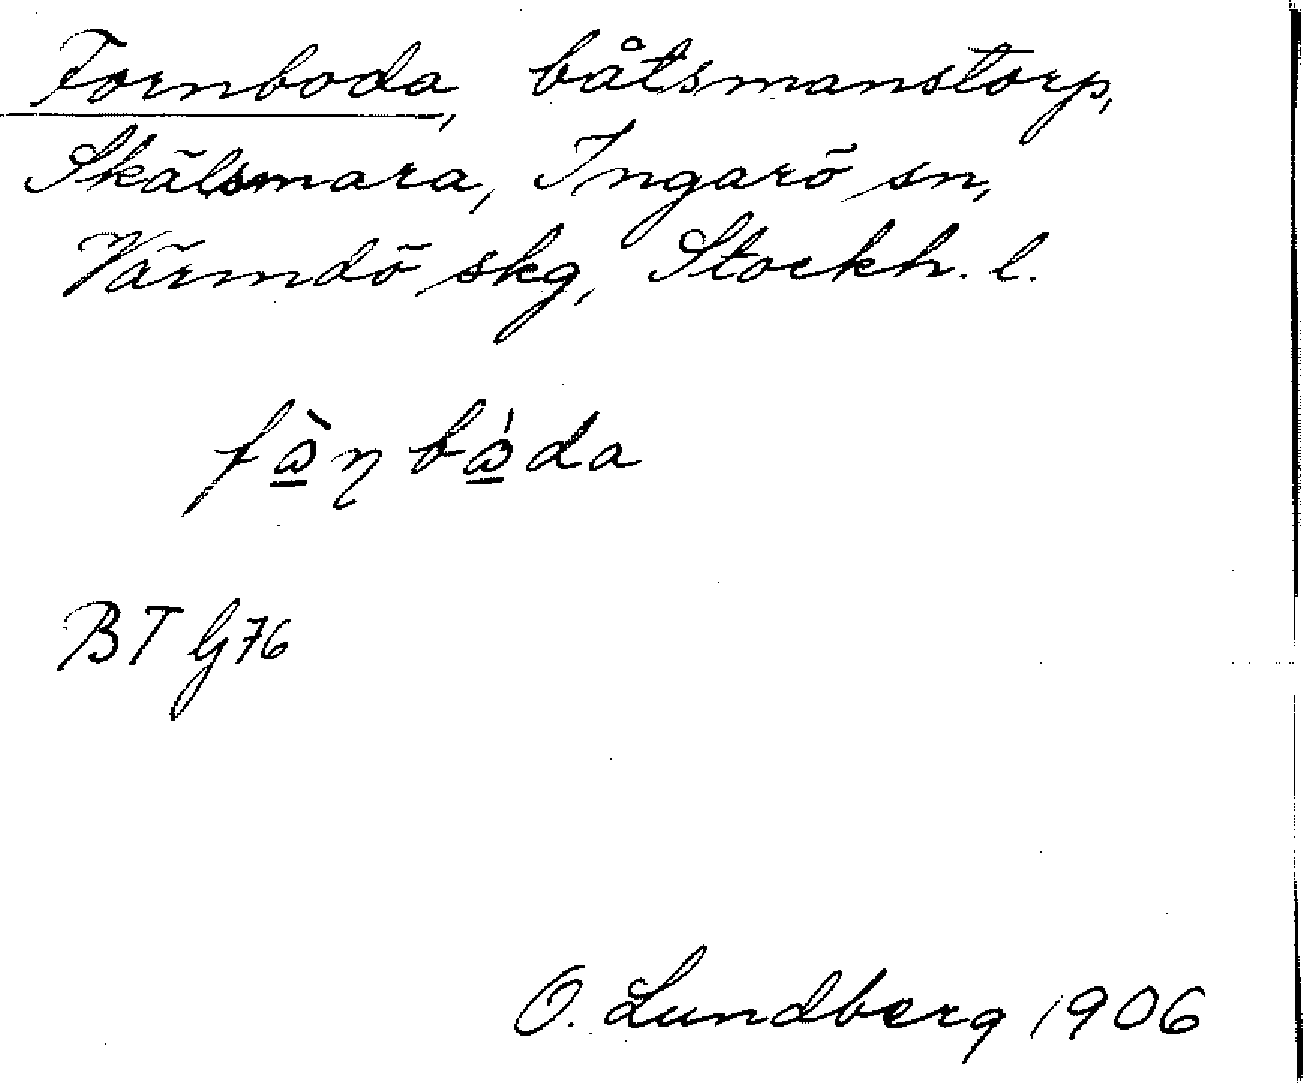 Fornboda, båtsmanstorp,
Skälsmara, Ingarö sn,
Värmdö skg, Stockh. l.
BT G76
O. Lundberg 1906